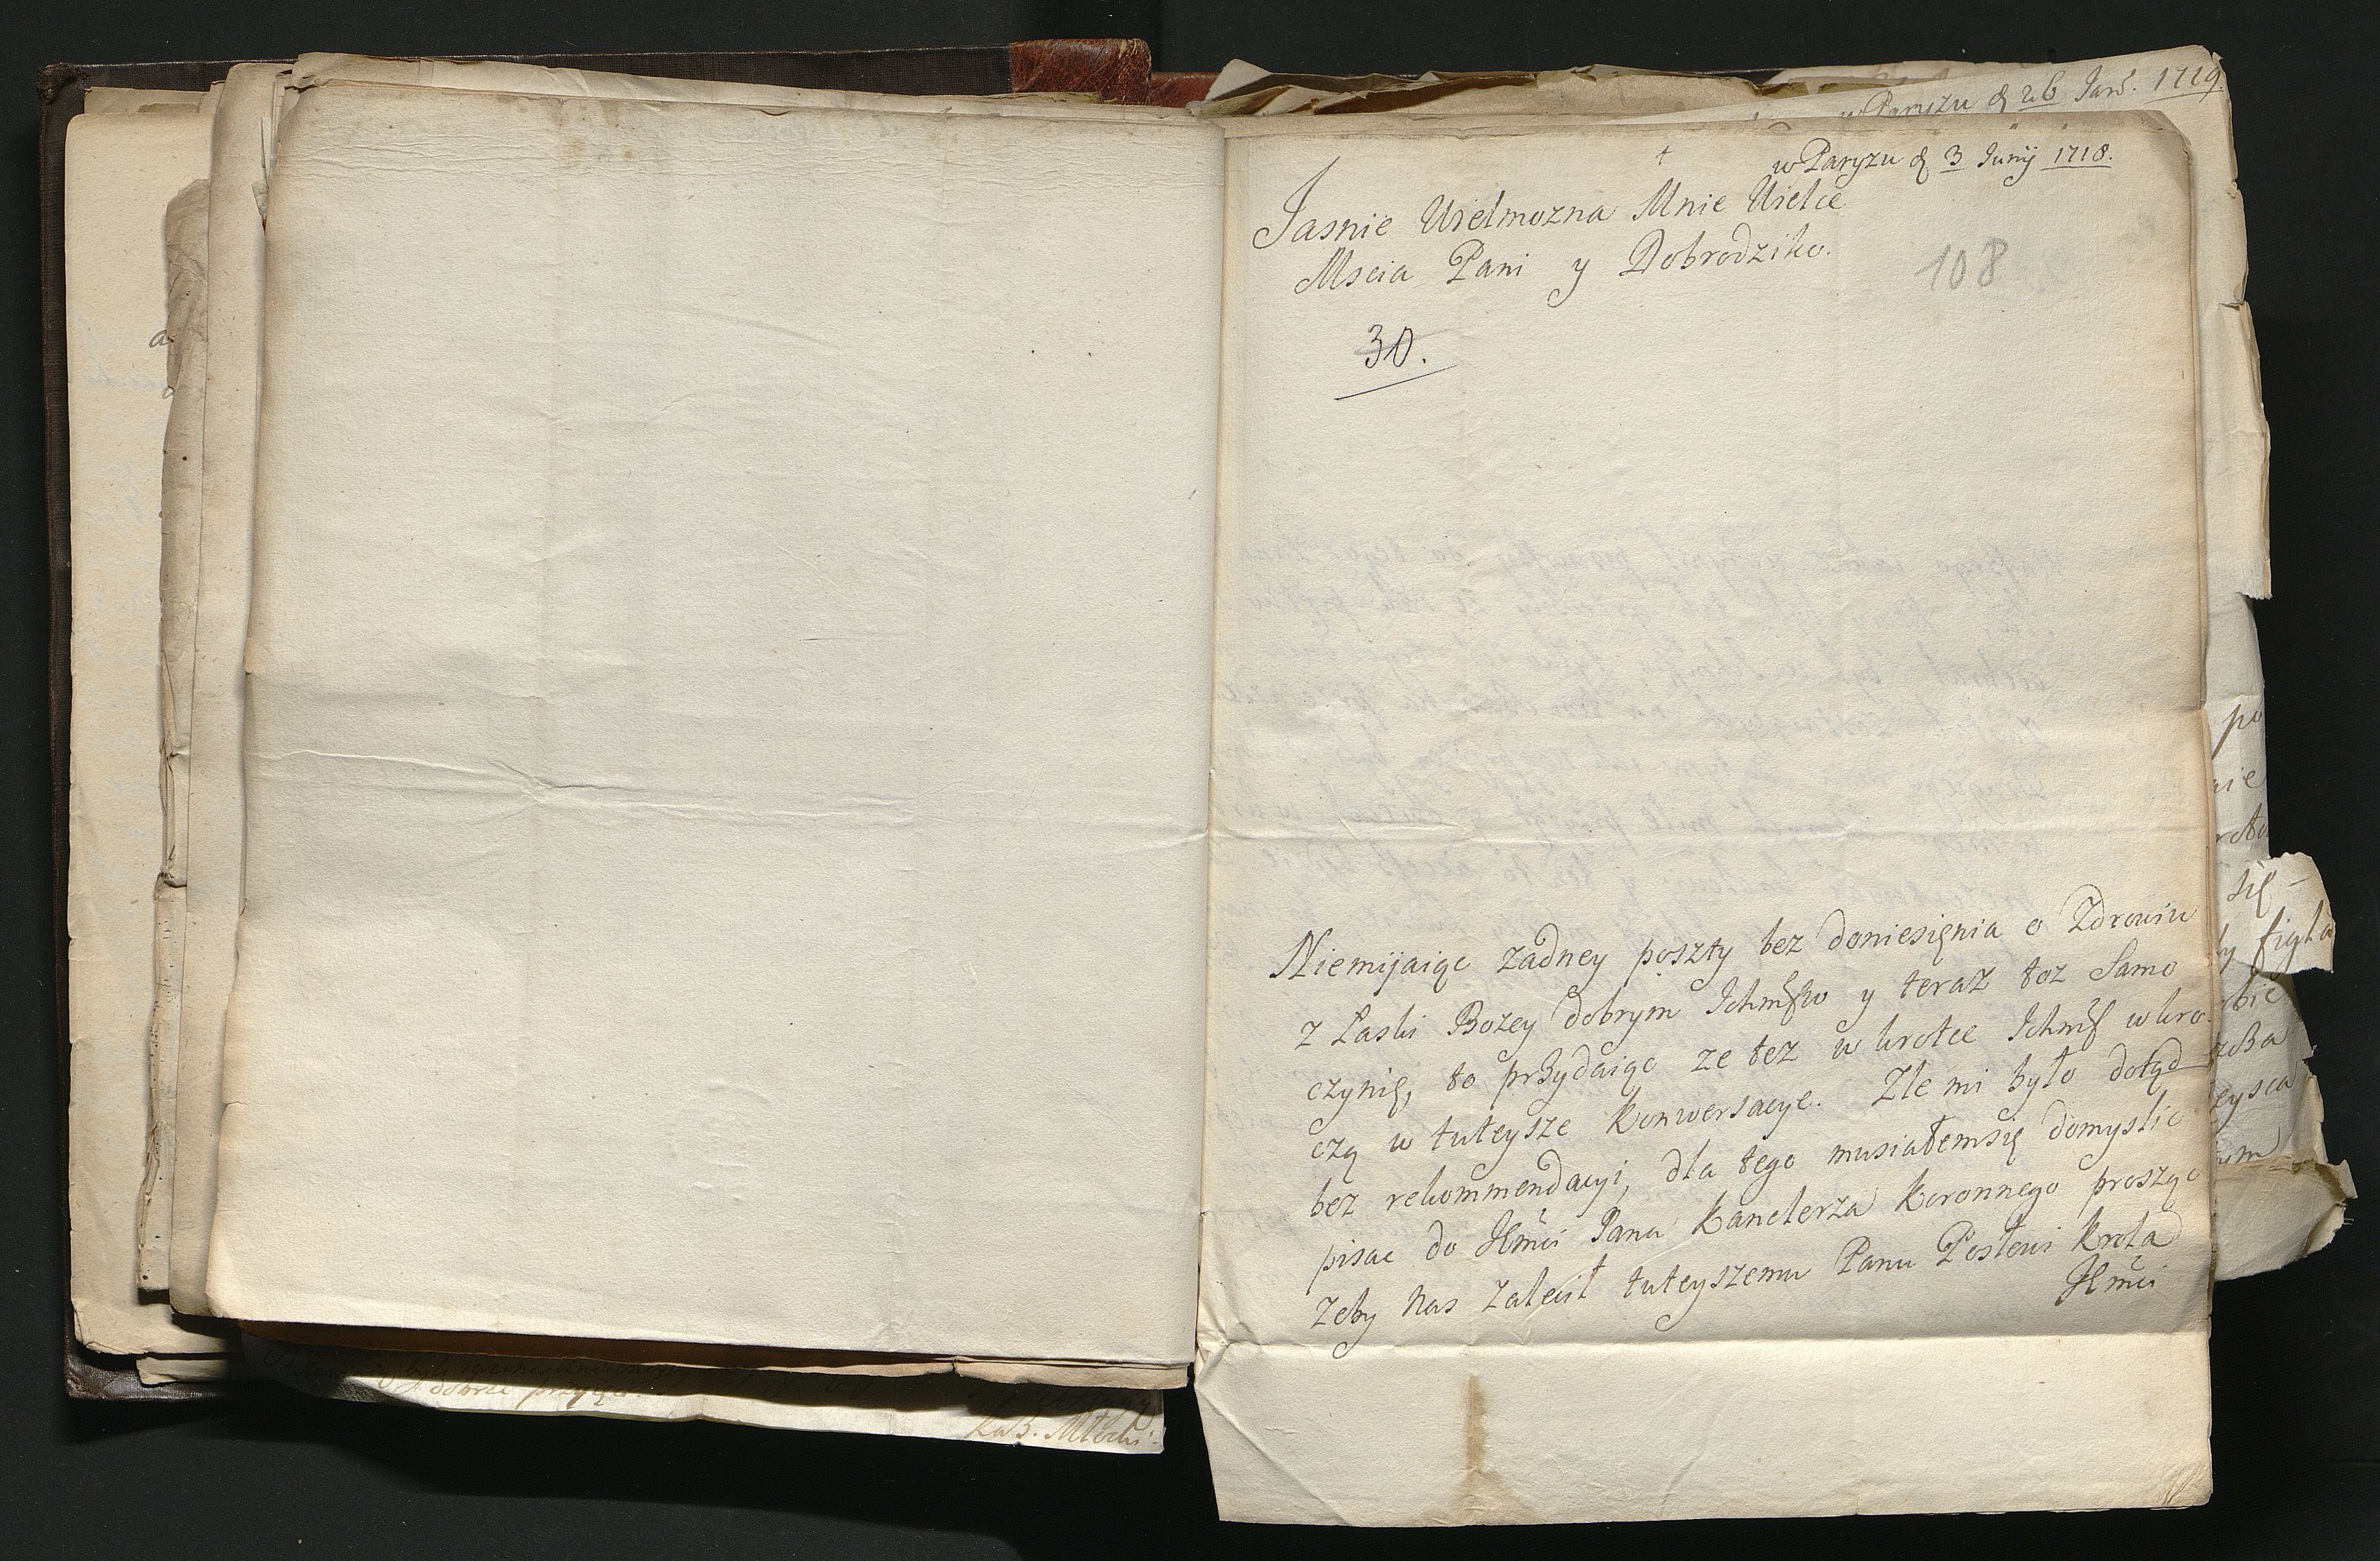 w Paryzu d 26 Jan. 1719.
†
w Paryzu d 3 Junij 1718.
Jasnie Wielmozna Mnie Wielce
Mscia Pani y Dobrodziko.
108
30.
Niemijaiąc zadney poszty bez doniesięnia o Zdrowiu
z Łaski Bozey dobrym Ichmć y teraz toz Samo
czynię, to przydaiąc ze tez w krotce Ichmć wkro
czą w tuteysze konwersacye. Zle mi było dotąd
bez rekommendacyi, dla tego musiałemsię domyslic
pisac do JEmći Pana Kanclerza Koronnego prosząc
zeby nas zalecił tuteyszemu Panu Posłowi Krola
JEmći
po
nie
się
figla
obic
eysca
dobrze przyięci
X.B. Młocki